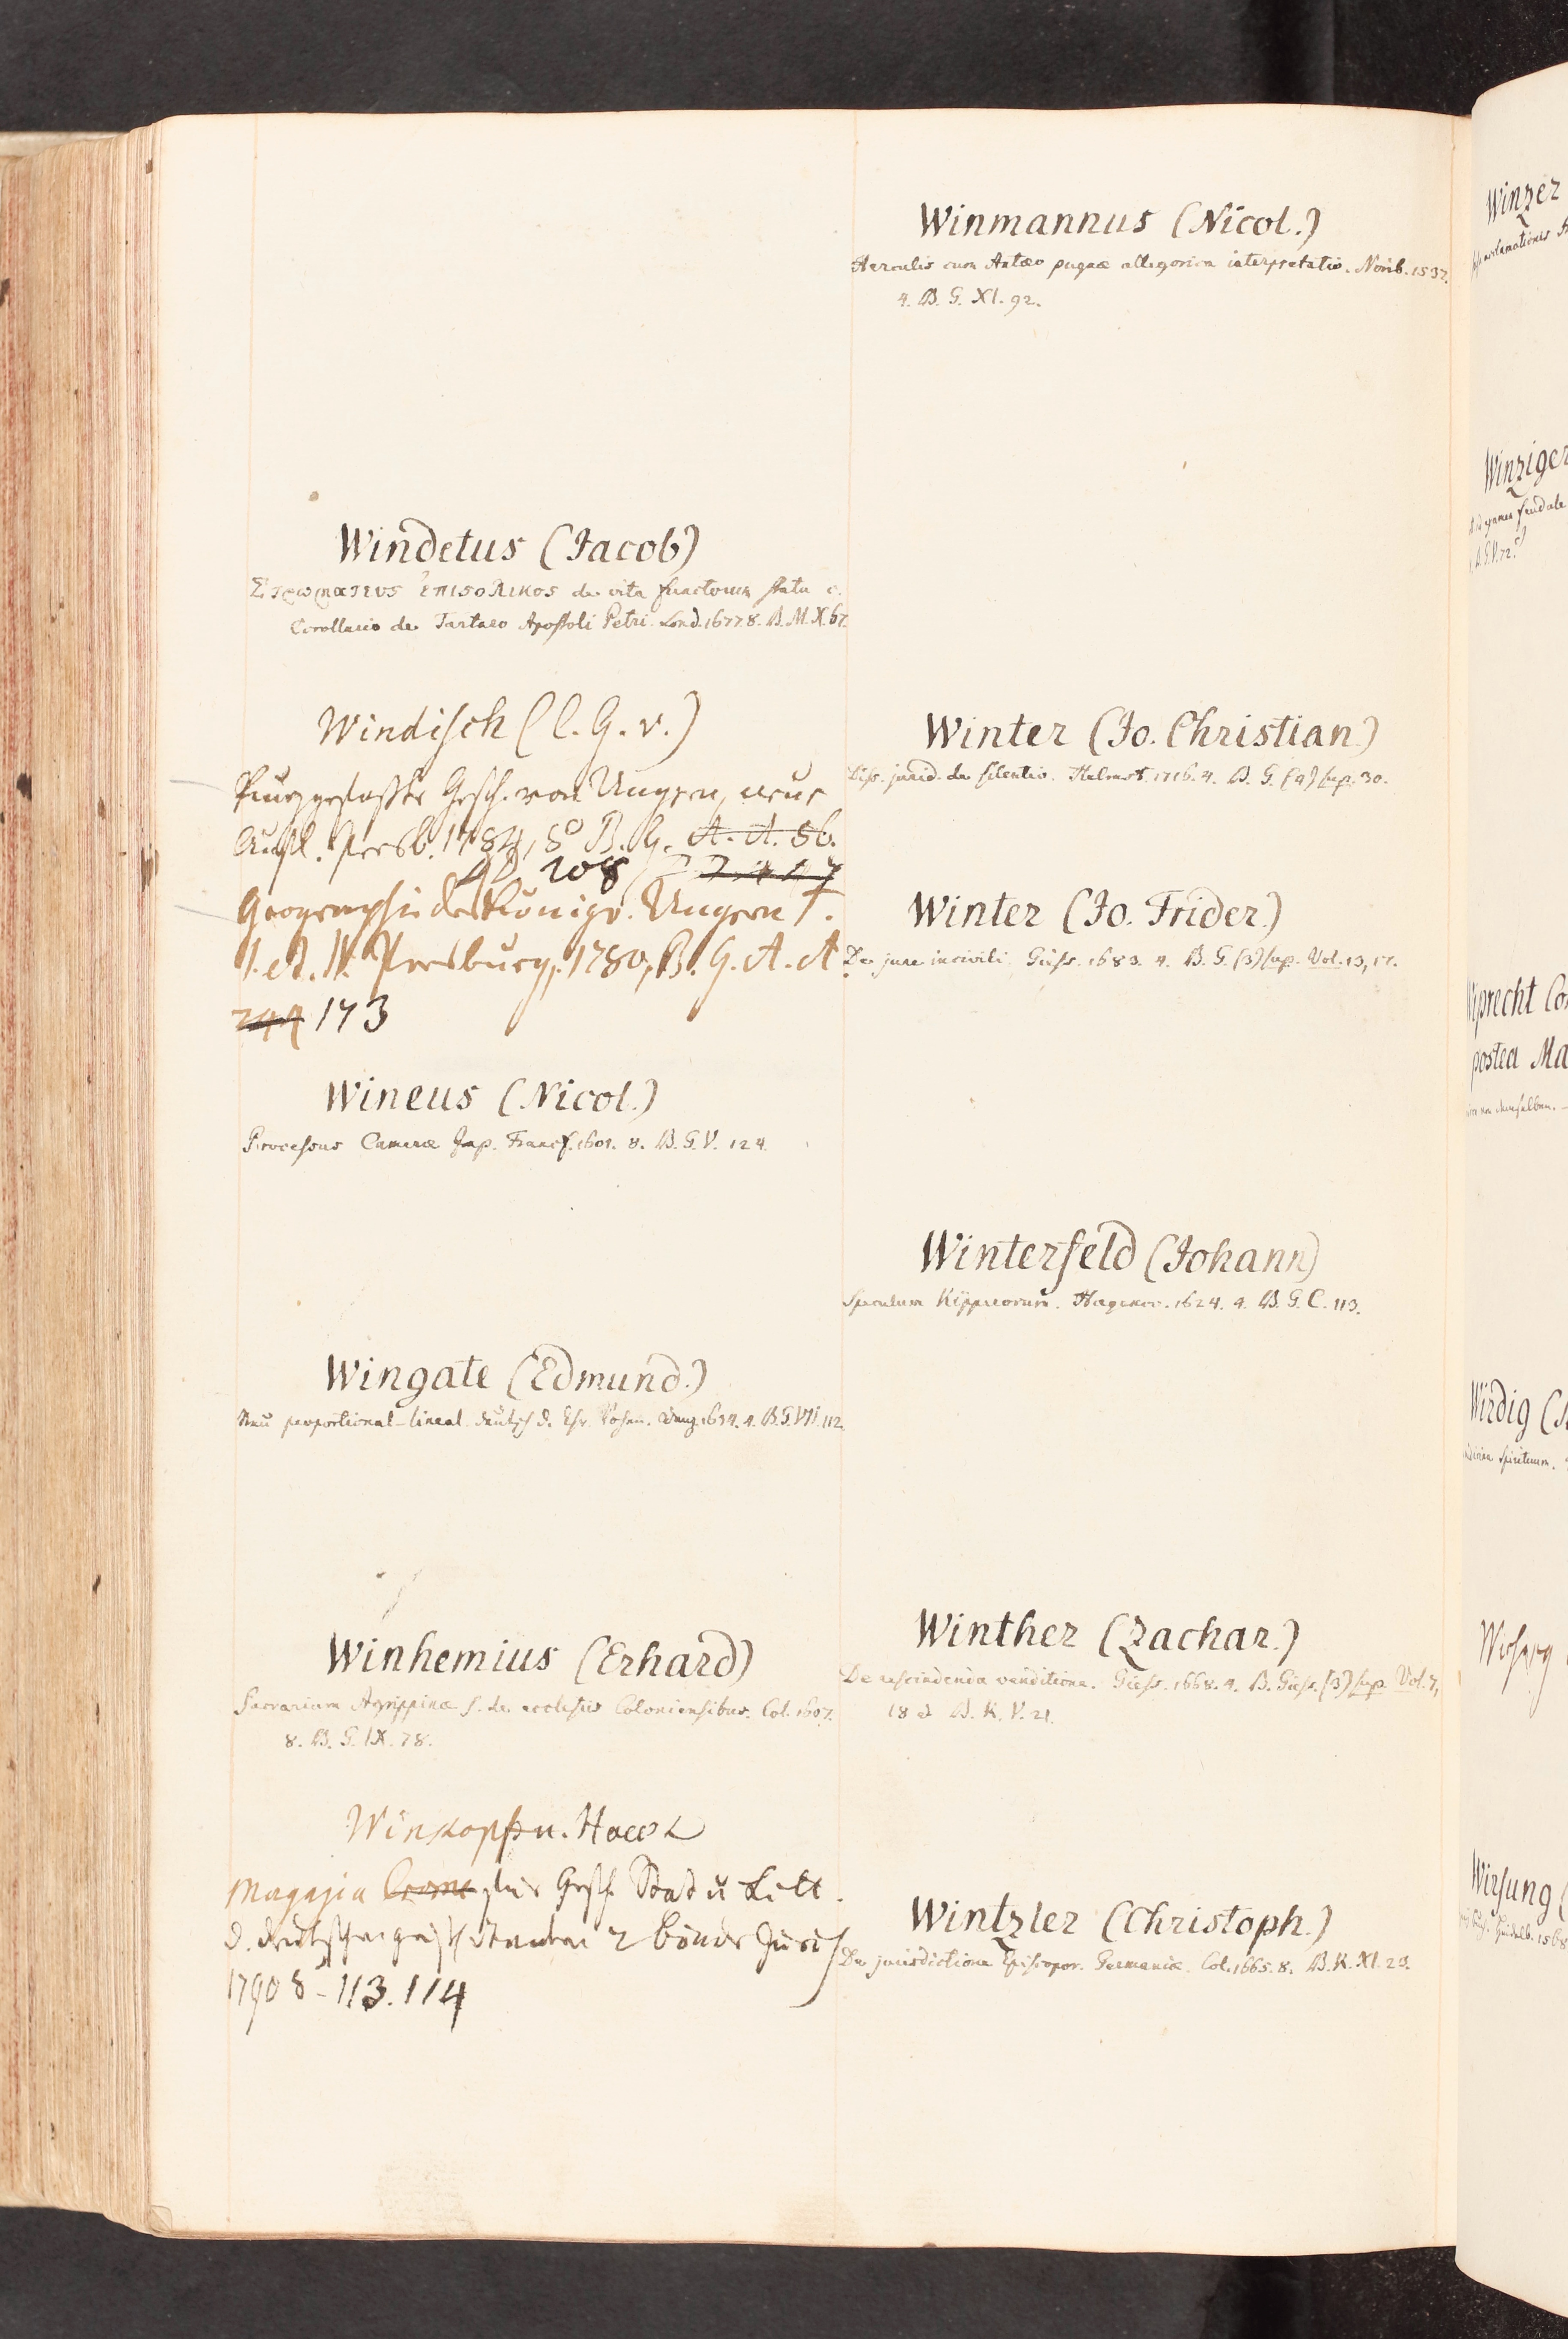 Windetus (Jacob)
Στρωματευς ἐπιϛολικος de vita functorum statu c.
Corollario de Tartaro Apostoli Petri. Lond. 1677 8. B. M. X. 67.
Windisch (C. G. v.)
Kurzgefaßte Gesch. von Ungern, neue
Aufl. Presb. 1784, 8° B. G. A. A. 86.
208
Geographie des Königr. Ungern T.
I. et. II. Presburg, 1780, B. G. A. A.
244 173
Wineus (Nicol.)
Processus Cameræ Imp. Francf. 1601. 8. B. G. V. 124.
Wingate (Edmund.)
Neu proportional-lineal. deutsch d. 4. B. G. VII. 112.
Winhemius (Erhard)
Sacrarium Agrippinæ s. de ecclesiis Coloniensibus. Col. 1607.
8. B. G. IX. 78.
Winkopp u.
Magazin für Gesch. Stat u Litt.
d. deutschen geistl 2 Bände Zürich
1790 8 - 113. 114
Winmannus (Nicol.)
Herculis cum Antæo pugnæ allegorica interpretatio. Norib. 1537.
4. B. G. XI. 92.
Winter (Jo. Christian.)
Diss. jurid. de silentio. Helmst. 1716. 4. B. G. (4) sup. 30.
Winter (Jo. Frider.)
De jure incivili. Giess. 1683. 4. B. G. (3) sup. Vol. 13, 17.
Winterfeld (Johann)
Speculum Kippreorum. Hagenov. 1624. 4. B. G. C. 113.
Winther (Zachar.)
De rescindenda venditione. Giess. 1668. 4. B. Giess. (3) sup. Vol. 7,
18 et B. K. V. 21.
Wintzler (Christoph.)
De jurisdictione Episcopor. Germaniæ. Col. 1665. 8. B. K. XI. 23.
Winzer
Winziger
feudale
Wiprecht
postea Ma
Wirdig
spirituum.
Wirsung
1568